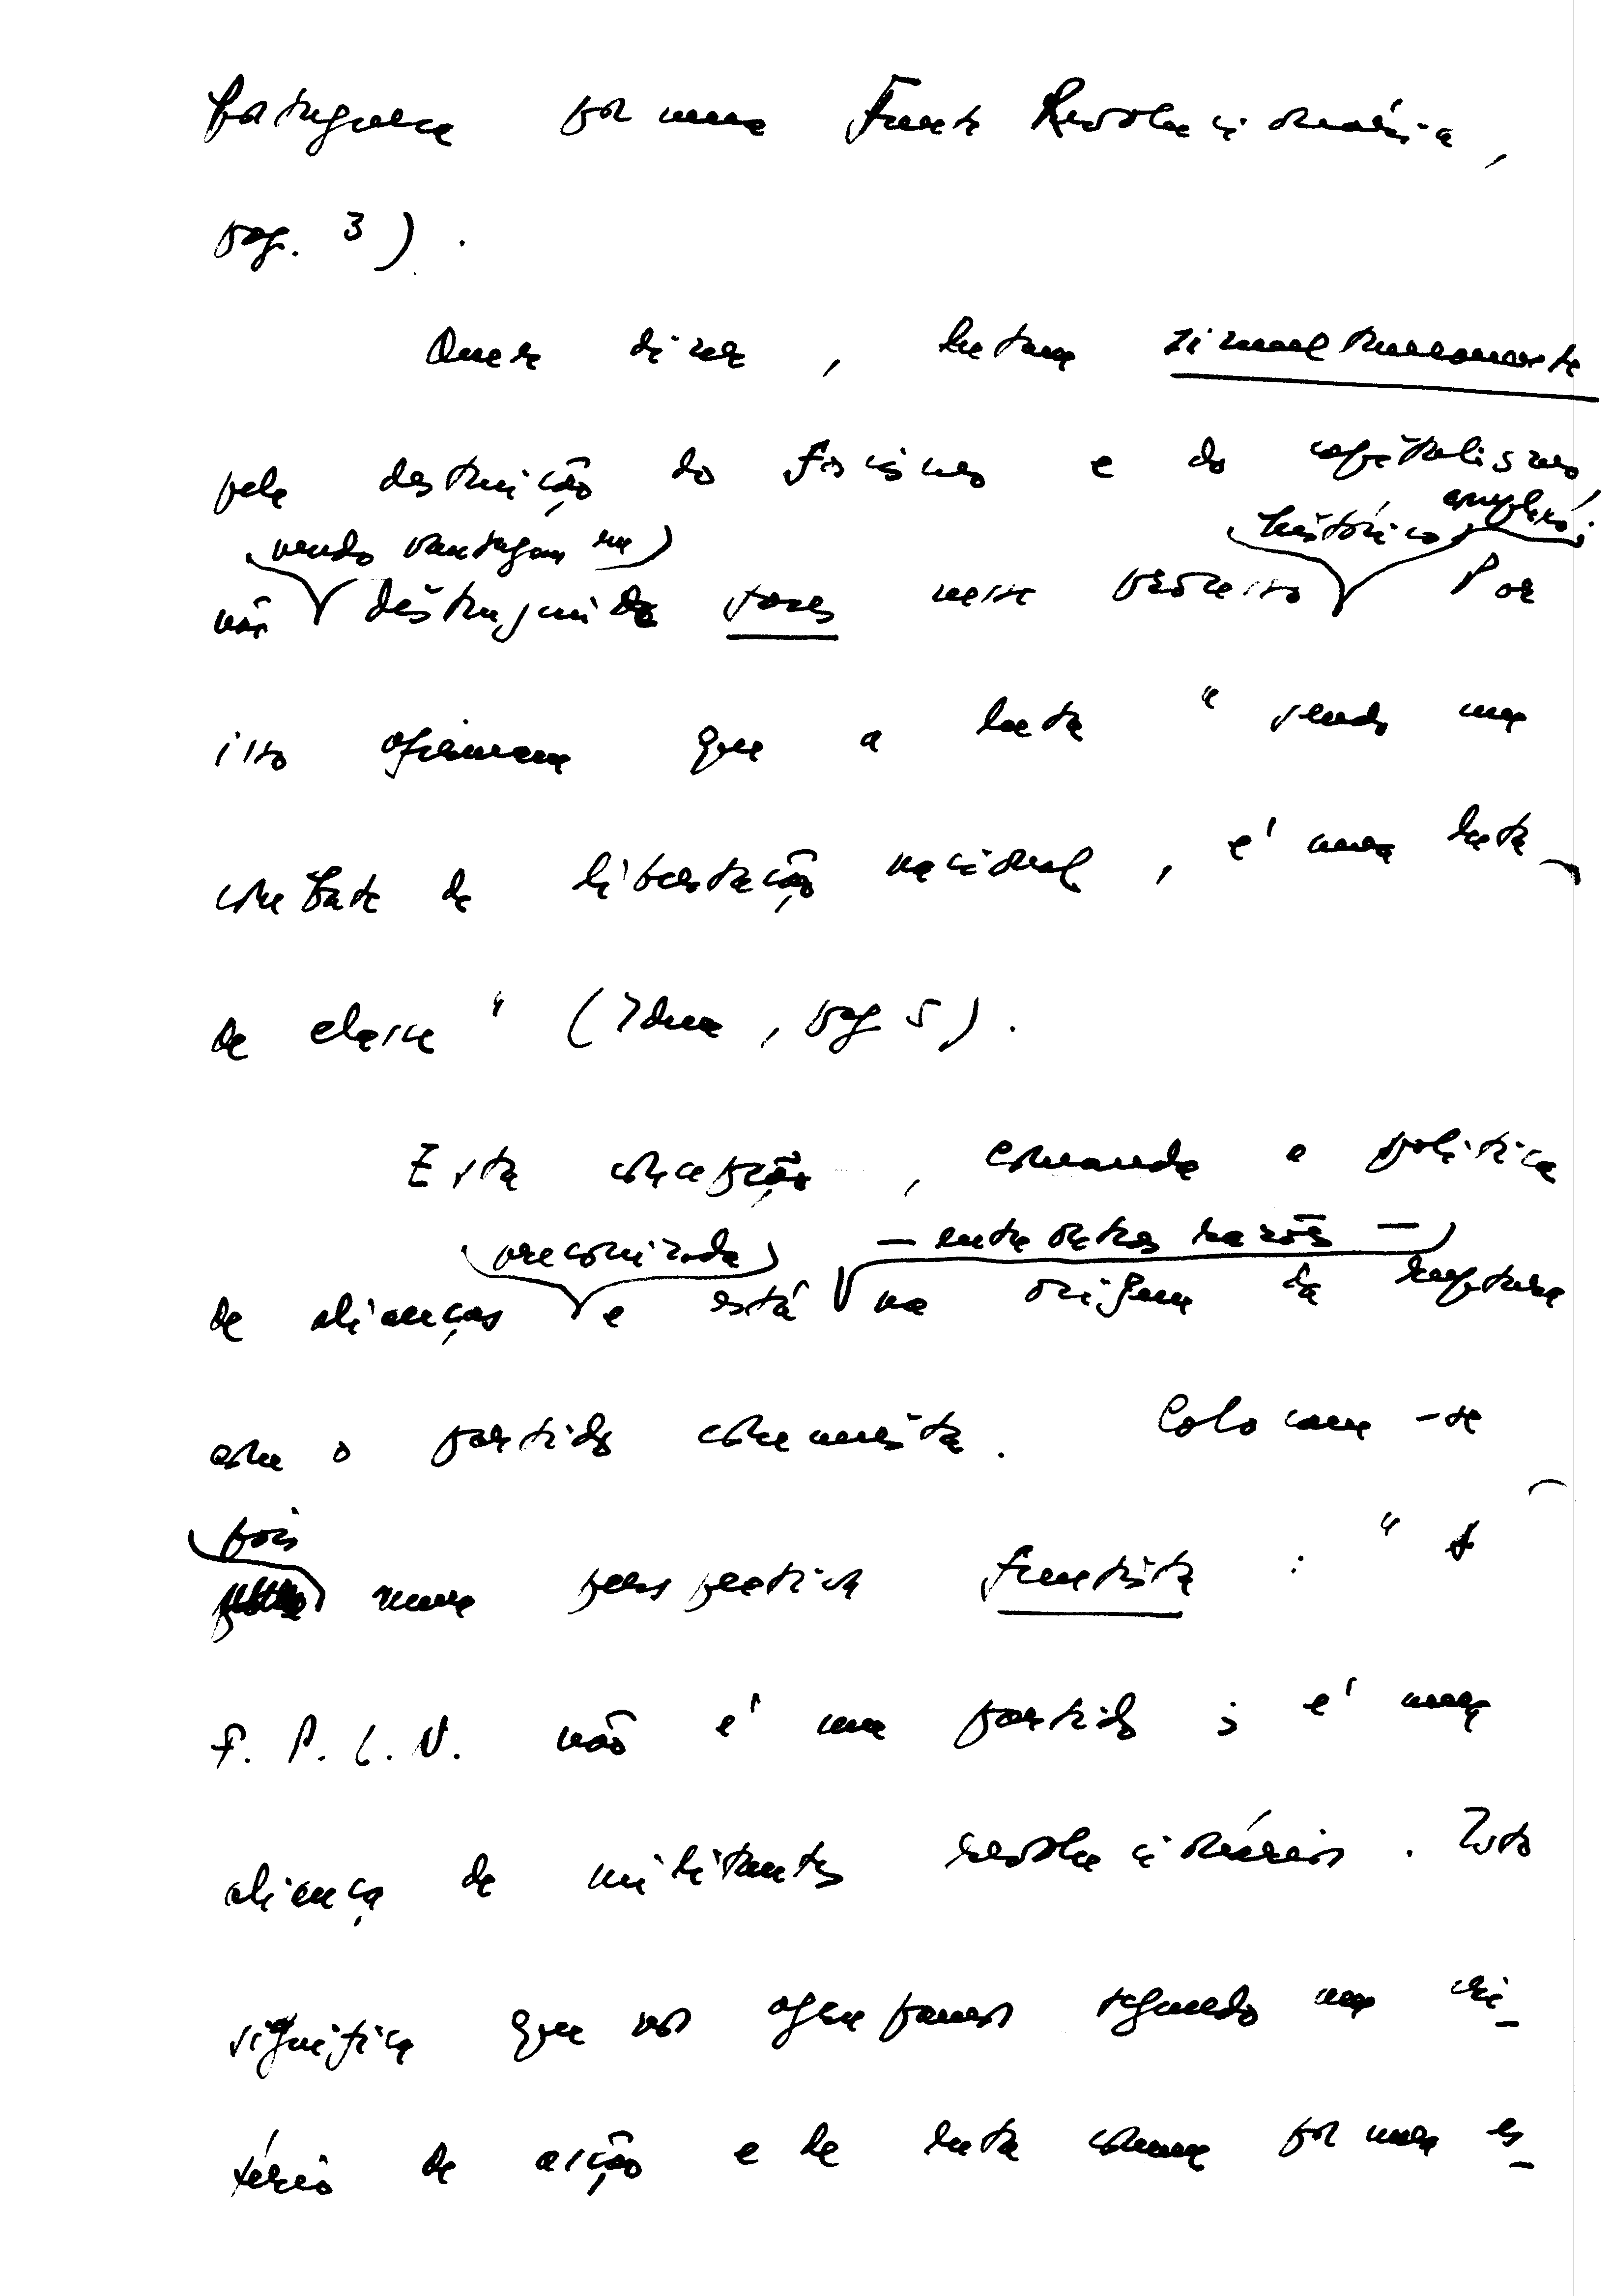 portuguesa por uma Frente Revolucionária,
pag. 3).
Quer dizer, lutam simultaneamente
pela destruição do fascismo e do capitalismo
vendo vantagem em histórico amplexo;
não distinguindo fases nesse processo Por
isso afirmam que a luta "sendo um
combate de libertação nacional, é uma luta
de classe" (Idem, pag 5).
Esta concepção, comanda a política
preconizada — entre outras razões —
de alianças e está na origem da ruptura
com o partido comunista. Colocam-se
pois
numa perspectiva frentista: "A
F. P. L. N. não é um partido; é uma
aliança de militantes revolucionários. Isto
significa que nos agrupamos segundo um cri-
tério de acção e de luta comum por uma es-